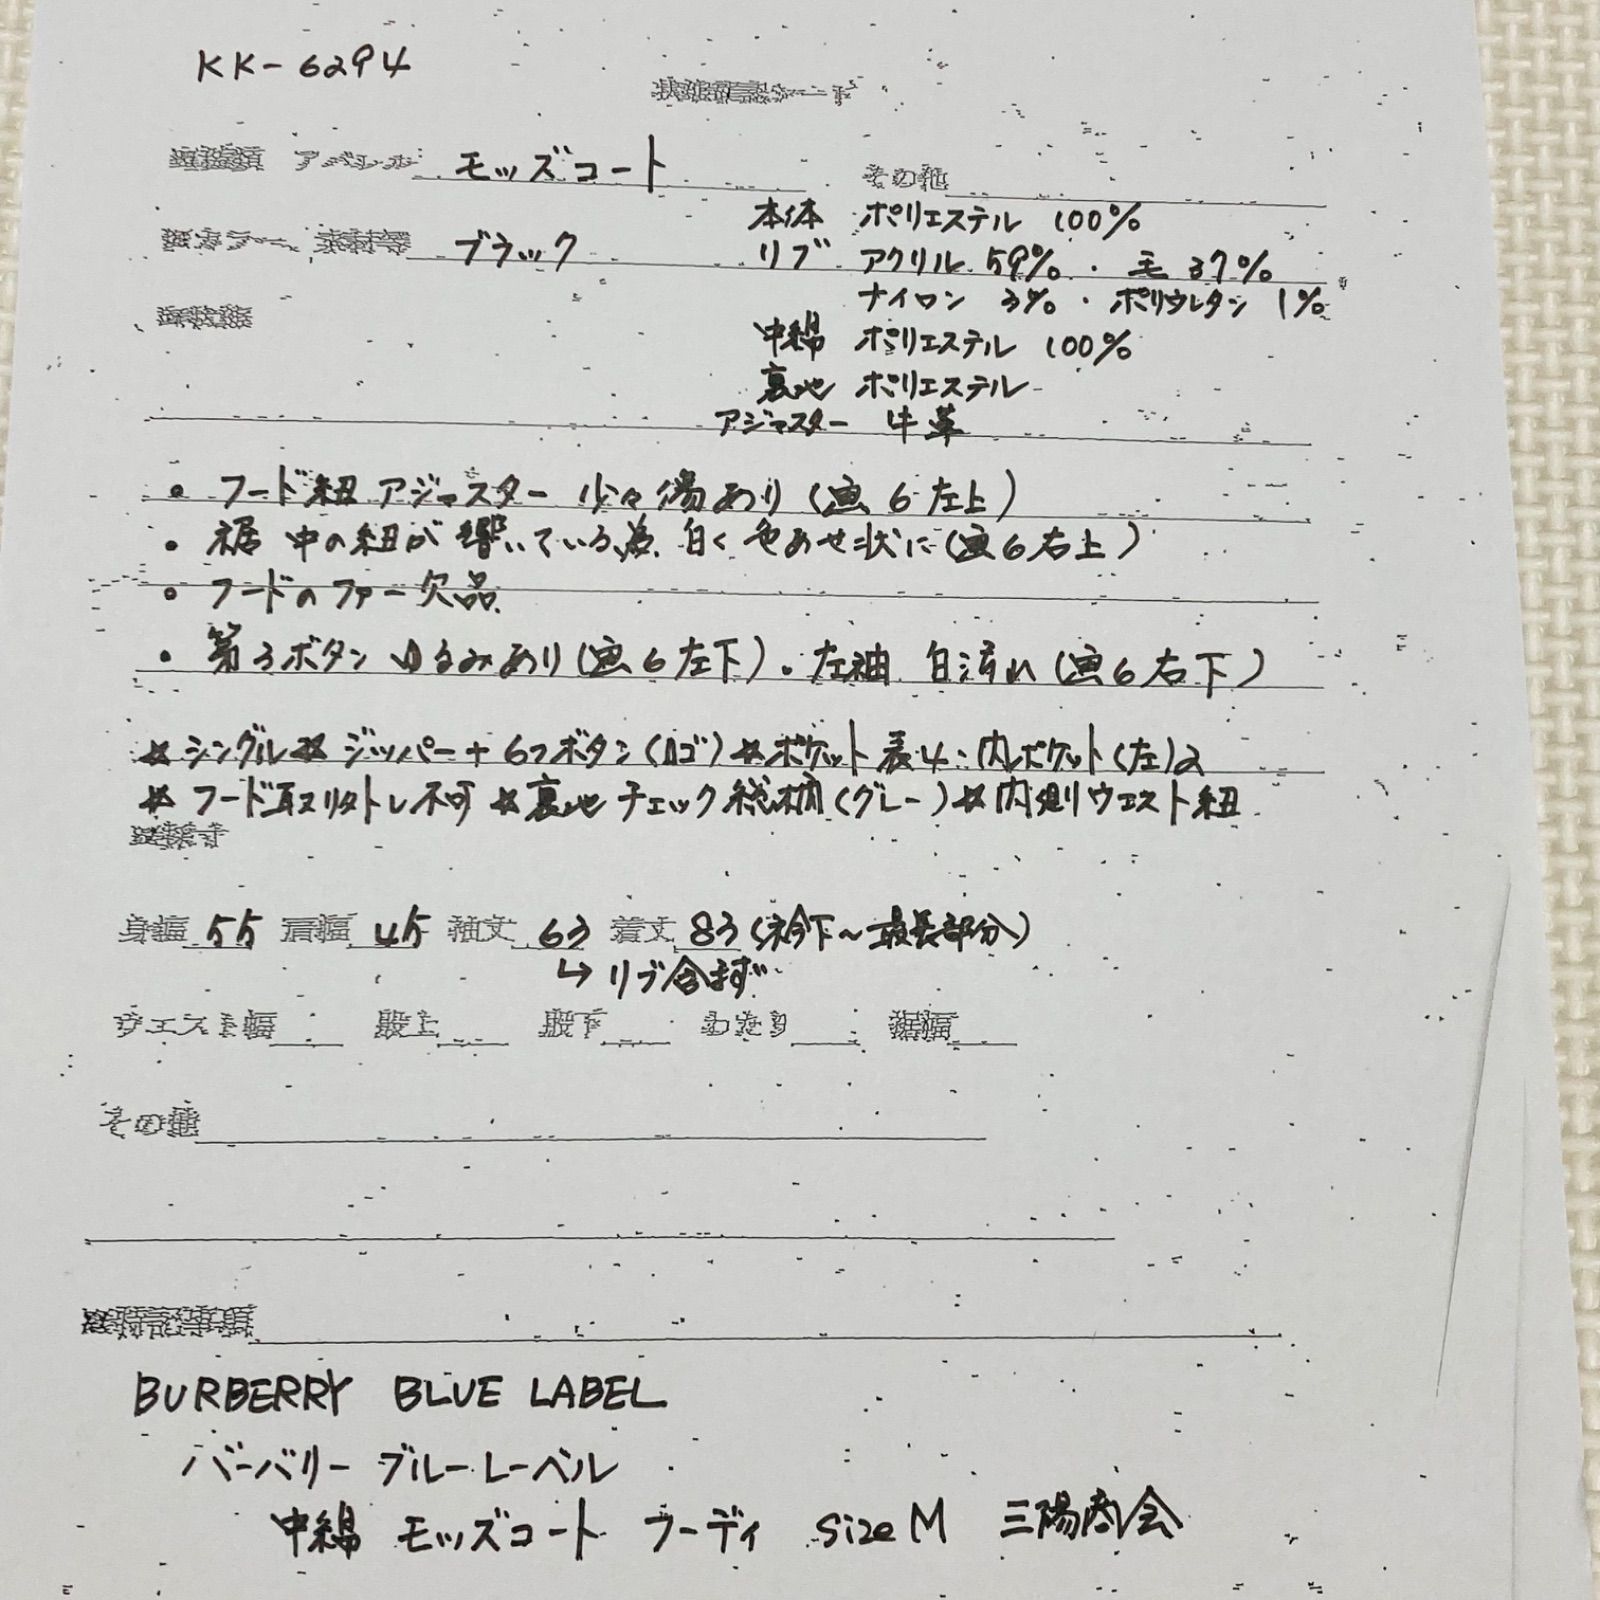 KK-6294
アパレル モッズコート その他
本体 ポリエステル 100%
ブラック リブ アクリル 59%・毛 37%
ナイロン 3%・ポリウレタン 1%
中綿 ポリエステル 100%
裏地 ポリエステル
アジャスター 牛革
• フード紐 アジャスター 少々傷あり(画6左上)
• 裾 中の紐が響いている為、白く色あせ状に(画6右上)
• フードのファー欠品
• 第3ボタン ゆるみあり(画6左下)。左袖 白汚れ(画6右下)
☆シングル☆ジッパー+6つボタン(ロゴ)☆ポケット表4:内ポケット(左)2
☆フード取り外し不可☆裏地チェック総柄(グレー)☆内側ウエスト紐
身幅 55 肩幅 45 袖丈 63 着丈 83(衿下~最長部分)
↳リブ含まず
ウエスト幅 股上 股下 わたり 裾幅
その他
BURBERRY BLUE LABEL
バーバリー ブルーレーベル
中綿 モッズコート フーディ size M 三陽商会